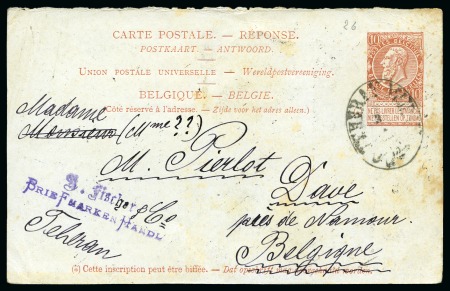 26
CARTE POSTALE. — RÉPONSE.
POSTKAART. — ANTWOORD.
UNION POSTALE UNIVERSELLE. — Wereldpostvereeniging.
BELGIQUE. — BELGIE.
(Côté réservé à l'adresse. — Zijde voor het adres alleen.)
10 10
Madame
Monsieur (Mme ??)
M. Pierlot
Dave
près de Namour.
Belgique
Fischer & Co
BRIEFMARKEN HANDL
Teheran
(5) Cette inscription peut être biffée. — Dat
TEHERAN